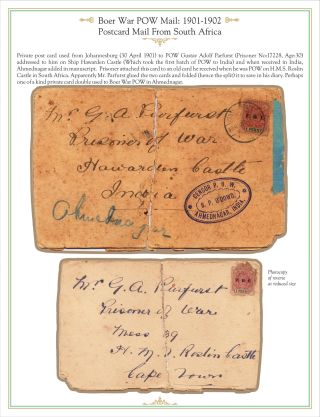 Boer War POW Mail: 1901-1902
Postcard Mail From South Africa
Private post card used from Johannesburg (30 April 1901) to POW Gustav Adolf Parfurst (Prisoner No:17228, Age:30)
addressed to him on Ship Hawarden Castle (Which took the first batch of POW to India) and when received in India,
Ahmednagar added in manuscript. Prisoner attached this card to an old card he received when he was POW on H.M.S. Roslin
Castle in South Africa. Apparently Mr. Parfurst glued the two cards and folded (hence the split) it to save in his diary. Perhaps
one of a kind private card double used to Boer War POW in Ahmednagar.
Mr G. A. Parfurst
Prisoner of War
Hawarden Castle
India
Ahmednagar
CENSOR P. O. W.
AHMEDNAGAR, INDIA.
Photocopy
of reverse
at reduced size
Mr G. A. Parfurst
Prisoner of War
Mess 39
H. M. S Roslin Castle
Cape Town